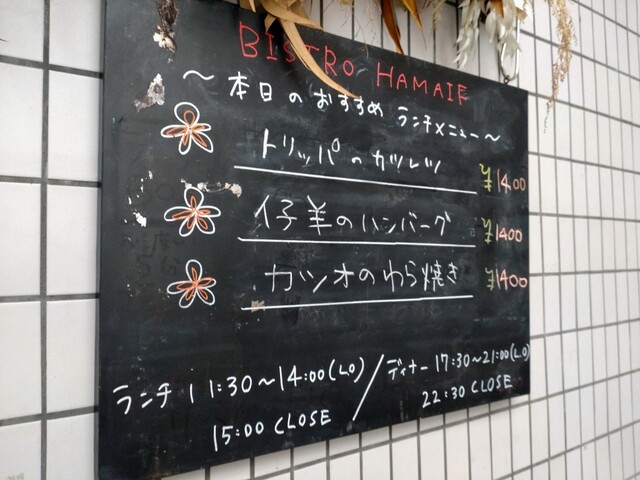 BISTRO HAMAIF
～本日のおすすめ ランチメニュー～
トリッパのカツレツ ¥1400
仔羊のハンバーグ ¥1400
カツオのわら焼き ¥1400
ランチ 11:30～14:00(LO) / ディナー 17:30～21:00(LO)
15:00 CLOSE 22:30 CLOSE